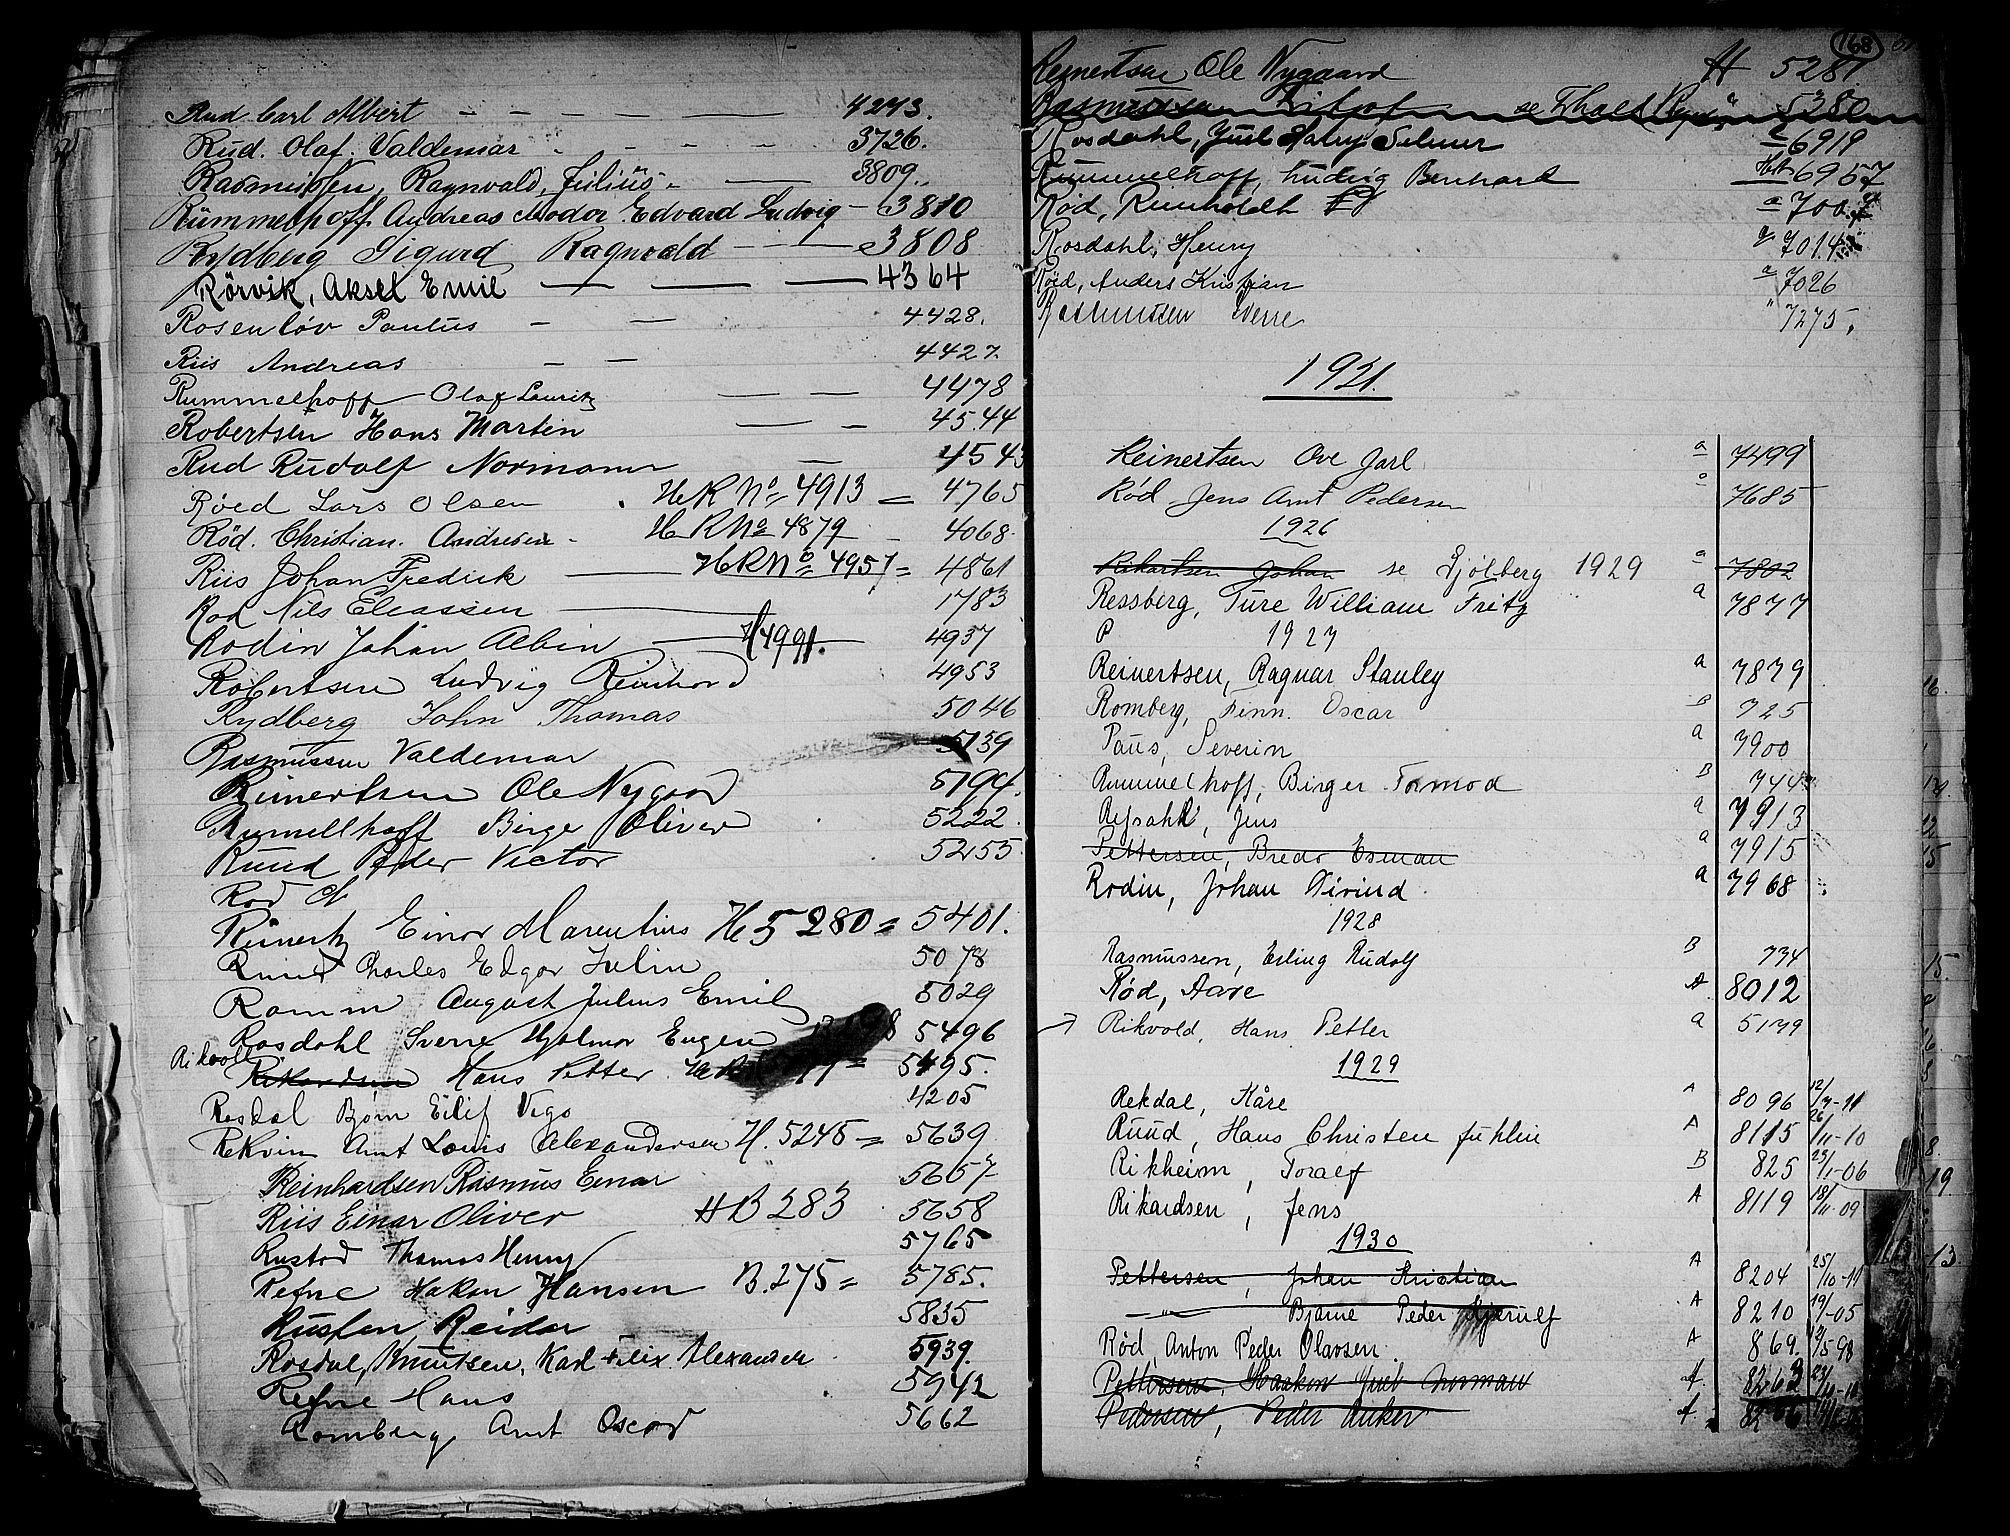 Rud Carl Albert - - - - - 4243.
Rud. Olaf. Valdemar - - - - 3726.
Rasmussen, Ragnvald, Julius - - 3809.
Rümmelhoff Andreas Modor Edvard Ludvig - 3810
Rydberg Sigurd Ragnvald - - 3808
Rörvik, Aksel Emil - - - 4364
Rosenlöv Paulus - - 4428.
Riis Andreas - - 4427.
Rummelhoff Olaf Lauritz - - 4478
Robertsen Hans Martin - - 4544
Rud Rudolf Normann - 4543
Röed Lars Olsen HRNo 4913 = 4765
Röd. Christian. Andresen - HRNo 4879 - 4068.
Riis Johan Fredrik - HRNo 4957 = 4861
Rod Nils Eleassen - 1783
Rodin Johan Albin - H 4991. 4937
Robertsen Ludvig Reinhard 4953
Rydberg John Thomas 5046
Rasmussen Valdemar 5139
Reinertsen Ole Nygaard 5194.
Rumellhoff Birger Oliver 5222.
Ruud Peder Victor 5253
Rod N
Reinertz Einar Marentius H 5280 = 5401.
Ruud Charles Edgar Julin 5078
Ramm August Julius Emil 5029
Rosdahl Sverre Hjalmar Eugen 5496
Rikvoll Rikardsen Hans Petter 5495.
Rosdal Bjørn Eilif Vigo 4205
Rekvin Arnt Louis Alexandersen H. 5245 = 5639
Reinhardsen Rasmus Einar 5657
Riis Einar Oliver HB 283 5658
Rustad Thomas Henry 5765
Refne Hakon Hansen B. 275 = 5785.
Rusten, Reidar 5835
Rosdal, Knutsen, Karl Felix Alexander 5939.
Refne Hans 5942
Romberg Arnt Oscar 5662
168
Reinertsen Ole Nygaard H 5281
Rasmussen se 5380
Rosdahl, Juul Halry Selmer a 6919
Rummelhoff, Ludvig Bernhard 6957
Rød, Reinholdt a 700
Rosdahl, Henry a 7014
Røed, Anders Kristian a 7026
Rasmussen Sverre " 7275.
1921.
Reinertsen Ove Jarl a 7499
Rød Jens Arnt Pedersen a 7685
1926
Rikartsen Johan se Gjölberg 1929 a 7802
Ressberg, Ture William Fritz a 7877
P 1927
Reinertsen, Ragnar Stanley a 7879
Romberg, Finn. Oscar B 725
Paus, Severin a 7900
Rummelhoff, Birger Tormod B 744
Refsahl, Jens a 7913
Pettersen, Bredo Esman a 7915
Rodin, Johan Eivind. a 7968
1928
Rasmussen, Erling Rudolf B 734
Rød, Aare A 8012
Rikvold, Hans Petter a 5139
1929
Rekdal, Kåre A 8096 12/7-11
Ruud, Hans Christen Juhlin A 8115 26/11-10
Rikheim, Toralf B 825 29/1-06
Rikardsen, Jens A 8119 18/11-09
1930
Pettersen, Johan Kristian A 8204 25/10-11
- " - Bjarne Peder Hjerulf A 8210 19/1-05
Rød, Anton Peder Olavsen. A 869. /5-98
Pettersen, Haakon Juel Norman A. 8263
Pedersen, Peder Anker A.